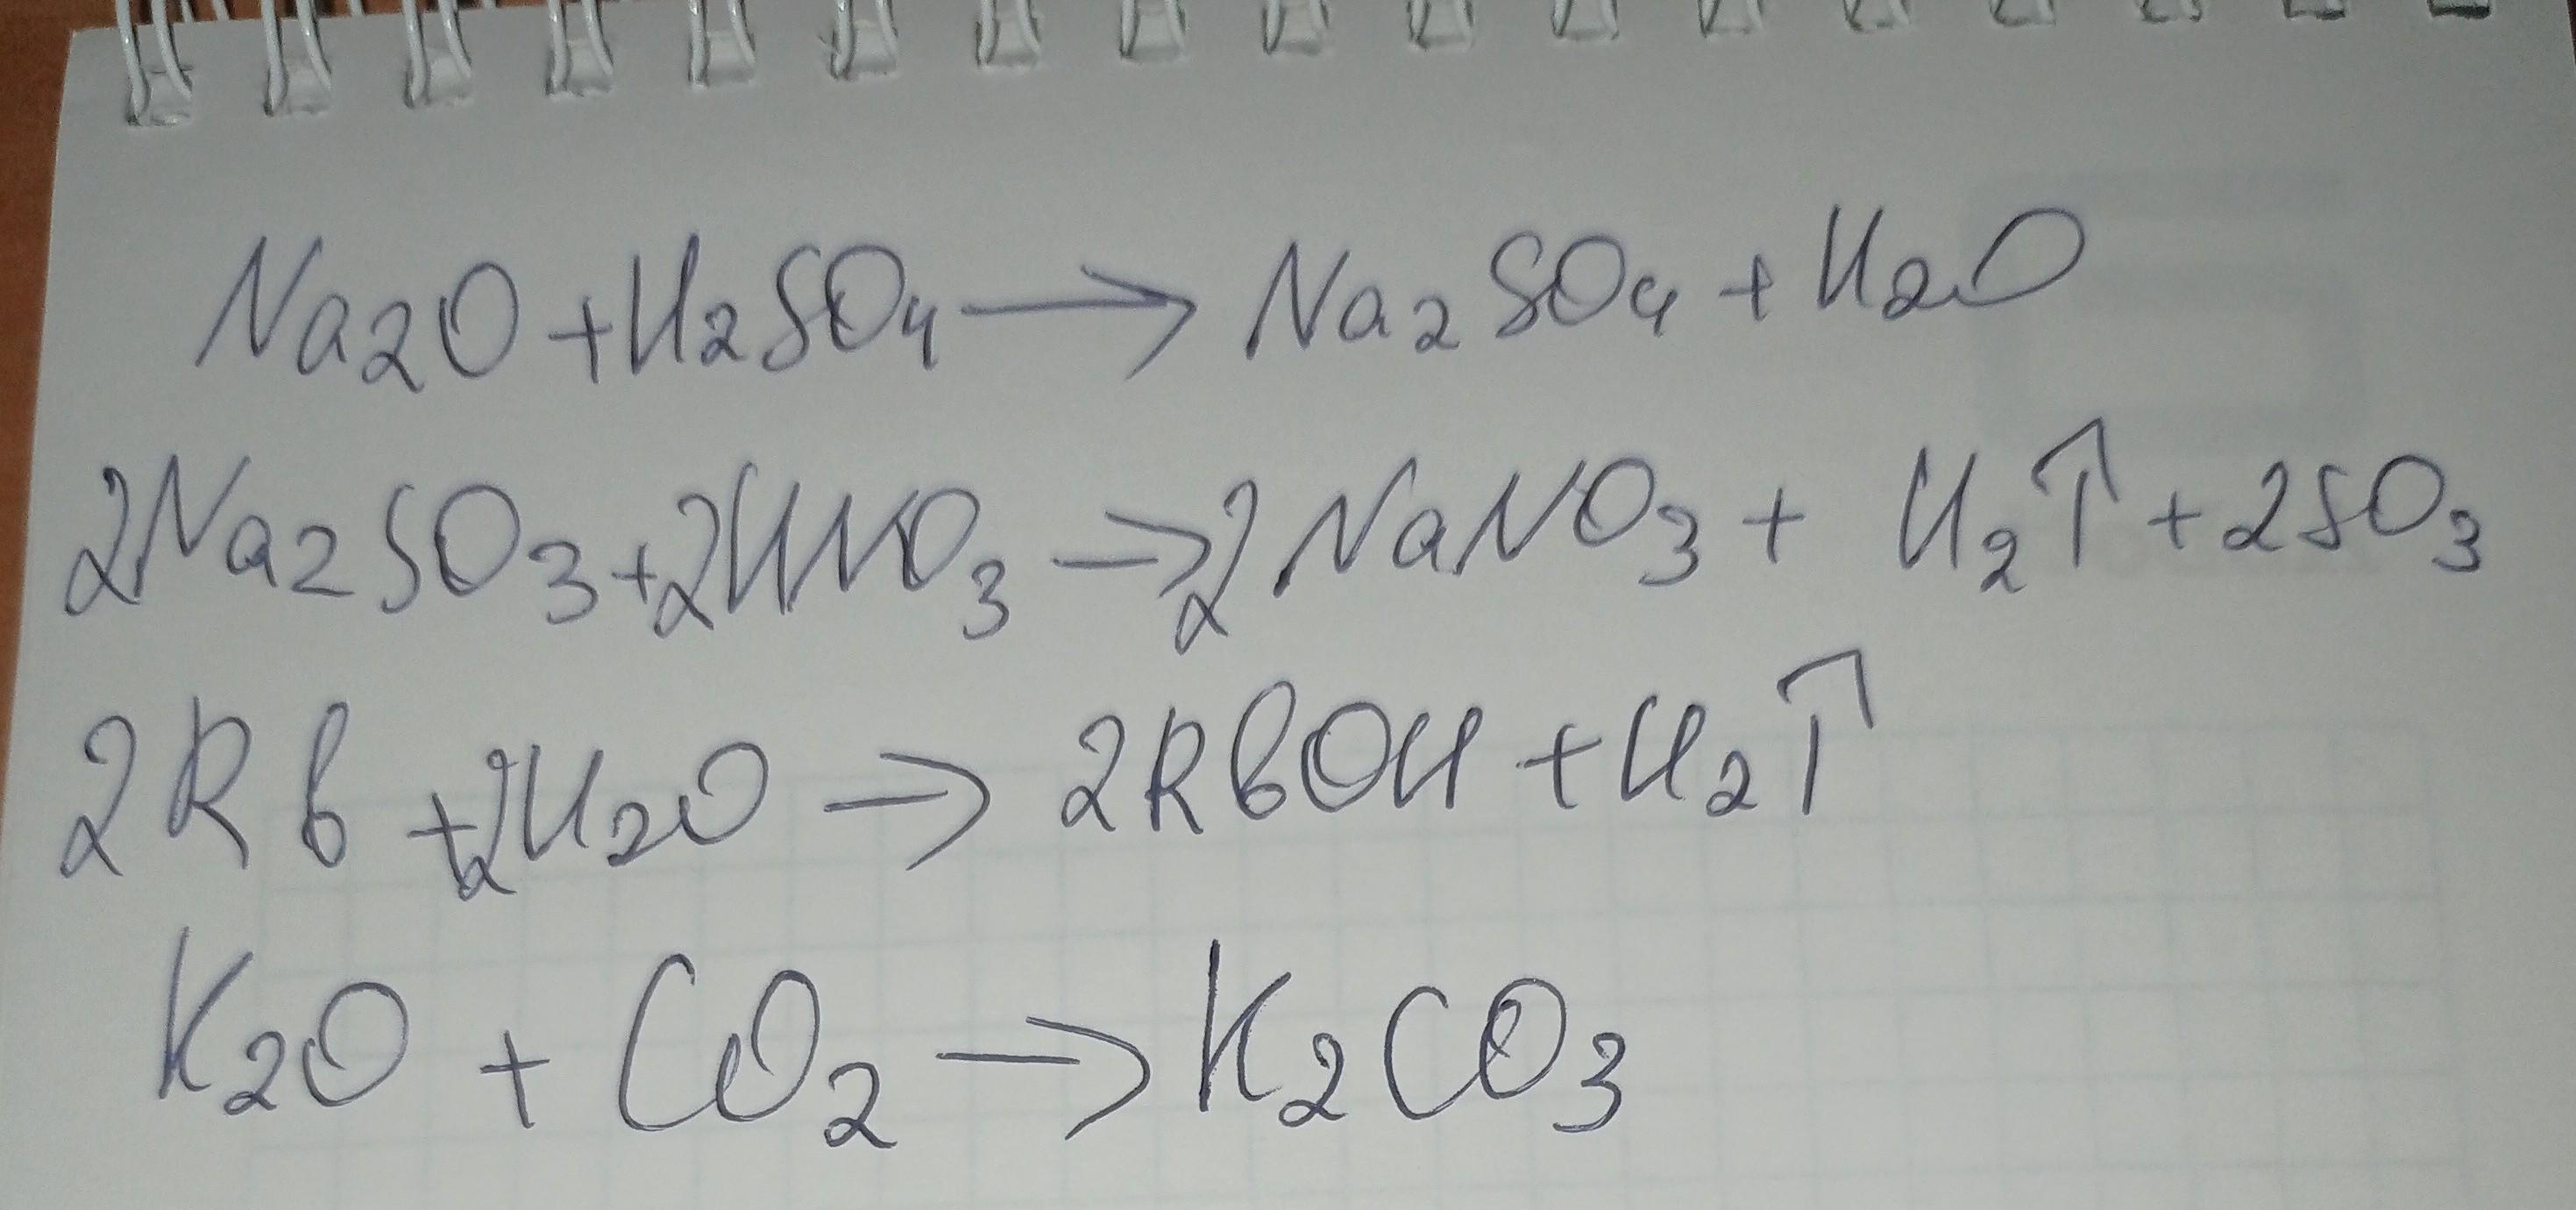 Na₂O + H₂SO₄ → Na₂SO₄ + H₂O
2Na₂SO₃ + 2HNO₃ → 2NaNO₃ + H₂↑ + 2SO₃
2Rb + 2H₂O → 2RbOH + H₂↑
K₂O + CO₂ → K₂CO₃